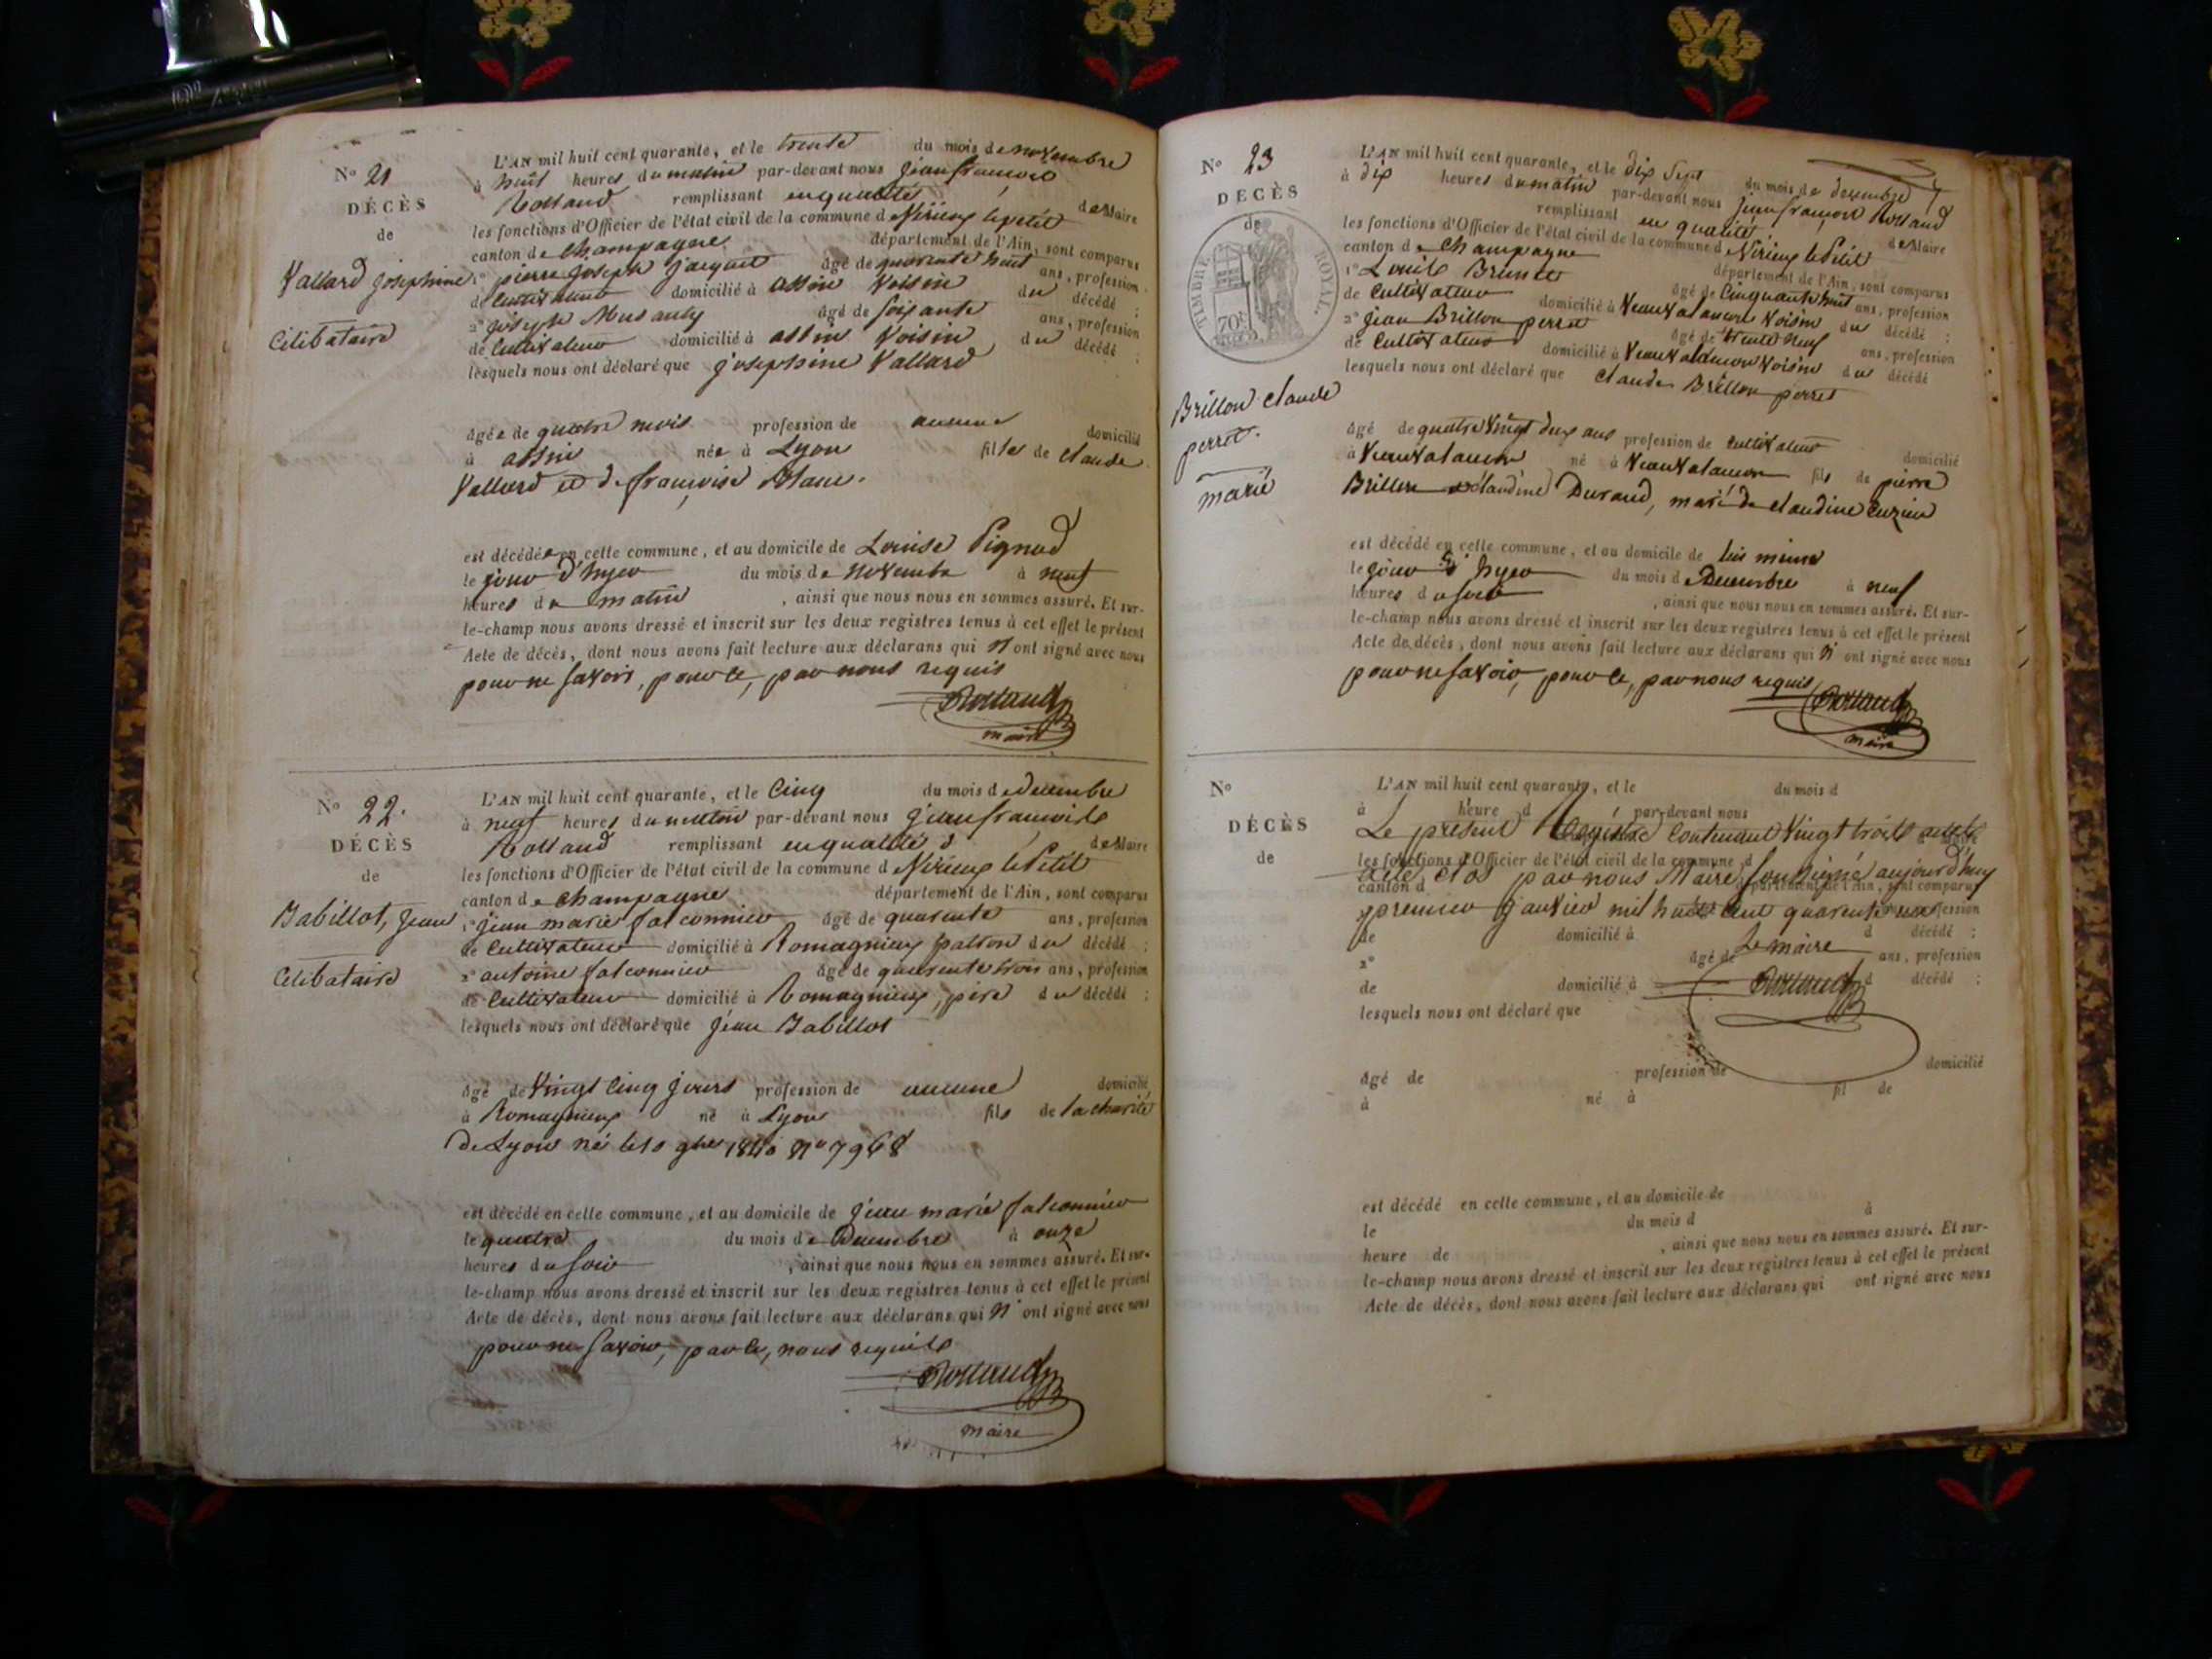 N° 21
DÉCÈS
de
Vallard Josephine
Célibataire
L'AN mil huit cent quarante, et le trente du mois de novembre
à huit heures du matin par-devant nous jean françois
Rolland remplissant en qualité de Maire
les fonctions d'Officier de l'état civil de la commune d Virieux le petit
canton de Champagne département de l'Ain, sont comparus
1° pierre joseph jacquet âgé de quarente huit ans, profession
de Cultivateur domicilié à assin Voisin du décédé ;
2° joseph âgé de soixante ans, profession
de Cultivateur domicilié à assin Voisin du décédé ;
lesquels nous ont déclaré que josephine Vallard
âgée de quatre mois profession de aucune domicilié
à assin née à Lyon fille de claude
Vallard et de françoise Blanc.
est décédée en cette commune, et au domicile de Louise Pignod
le jour d'hyer du mois de Novembre à neuf
heures du matin, ainsi que nous nous en sommes assuré. Et sur-
le-champ nous avons dressé et inscrit sur les deux registres tenus à cet effet le présent
Acte de décès, dont nous avons fait lecture aux déclarans qui n'ont signé avec nous
pour ne savoir, pour ce, par nous requis
Rolland
maire
N° 22.
DÉCÈS
de
Babillot, Jean
Célibataire
L'AN mil huit cent quarante, et le Cinq du mois de decembre
à neuf heures du matin par-devant nous jean françois
Rolland remplissant en qualité d de Maire
les fonctions d'Officier de l'état civil de la commune d Virieux le Petit
canton de Champagne département de l'Ain, sont comparus
1° jean marie falconnier âgé de quarente ans, profession
de Cultivateur domicilié à Romagnieux patron du décédé ;
2° antoine falconnier âgé de quarente trois ans, profession
de Cultivateur domicilié à Romagnieux, père du décédé ;
lesquels nous ont déclaré que jean Babillot
âgé de Vingt Cinq jours profession de aucune domicilié
à Romagnieux né à Lyon fils de la charité
de Lyon né le 10 9bre 1840 N° 7968
est décédé en cette commune, et au domicile de jean marie falconnier
le quatre du mois de Decembre à onze
heures du soir, ainsi que nous nous en sommes assuré. Et sur-
le-champ nous avons dressé et inscrit sur les deux registres tenus à cet effet le présent
Acte de décès, dont nous avons fait lecture aux déclarans qui n'ont signé avec nous
pour ne savoir, par ce, nous requis
Rolland
maire
N° 23
DÉCÈS
de
TIMBRE ROYAL.
70c
Brillon claude
perret.
marié
L'AN mil huit cent quarante, et le dix Sept du mois de decembre
à dix heures du matin par-devant nous jean françois Rolland
remplissant en qualité de Maire
les fonctions d'Officier de l'état civil de la commune d Virieux le Petit
canton de Champagne département de l'Ain, sont comparus
1° Louis Brunet âgé de Cinquante huit ans, profession
de Cultivateur domicilié à Voisin du décédé ;
2° jean Brillon perret âgé de trente neuf ans, profession
de Cultivateur domicilié à Voisin du décédé
lesquels nous ont déclaré que claude Brillon perret
âgé de quatre Vingt deux ans profession de Cultivateur domicilié
à né à fils de pierre
Brillon et claudine Durand, marié de claudine Cuzin
est décédé en cette commune, et au domicile de lui même
le jour d'hyer du mois de Decembre à neuf
heures du soir, ainsi que nous nous en sommes assuré. Et sur-
le-champ nous avons dressé et inscrit sur les deux registres tenus à cet effet le présent
Acte de décès, dont nous avons fait lecture aux déclarans qui n'ont signé avec nous
pour ne savoir, pour ce, par nous requis
Rolland
maire
N°
DÉCÈS
de
L'AN mil huit cent quarante, et le du mois d
à heure d par-devant nous
Le présent Registre Contenant Vingt trois actes
les fonctions d'Officier de l'état civil de la commune d
clos par nous Maire soussigné aujourd'huy
canton d département de l'Ain, sont comparus
premier janvier mil huit cent quarente un profession
de domicilié à d décédé ;
Le maire
2° âgé de ans, profession
de domicilié à Rolland d décédé ;
lesquels nous ont déclaré que
âgé de profession de domicilié
à né à fil de
est décédé en cette commune, et au domicile de
le du mois d à
heure de , ainsi que nous nous en sommes assuré. Et sur-
le-champ nous avons dressé et inscrit sur les deux registres tenus à cet effet le présent
Acte de décès, dont nous avons fait lecture aux déclarans qui ont signé avec nous